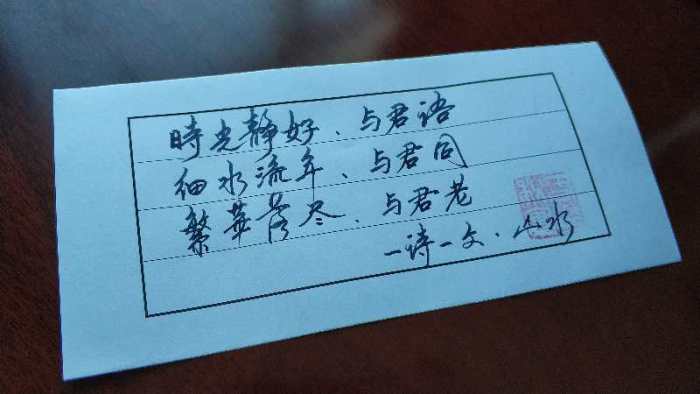 時光静好、与君语
细水流年、与君同
繁華落尽、与君老
一诗一文·山水